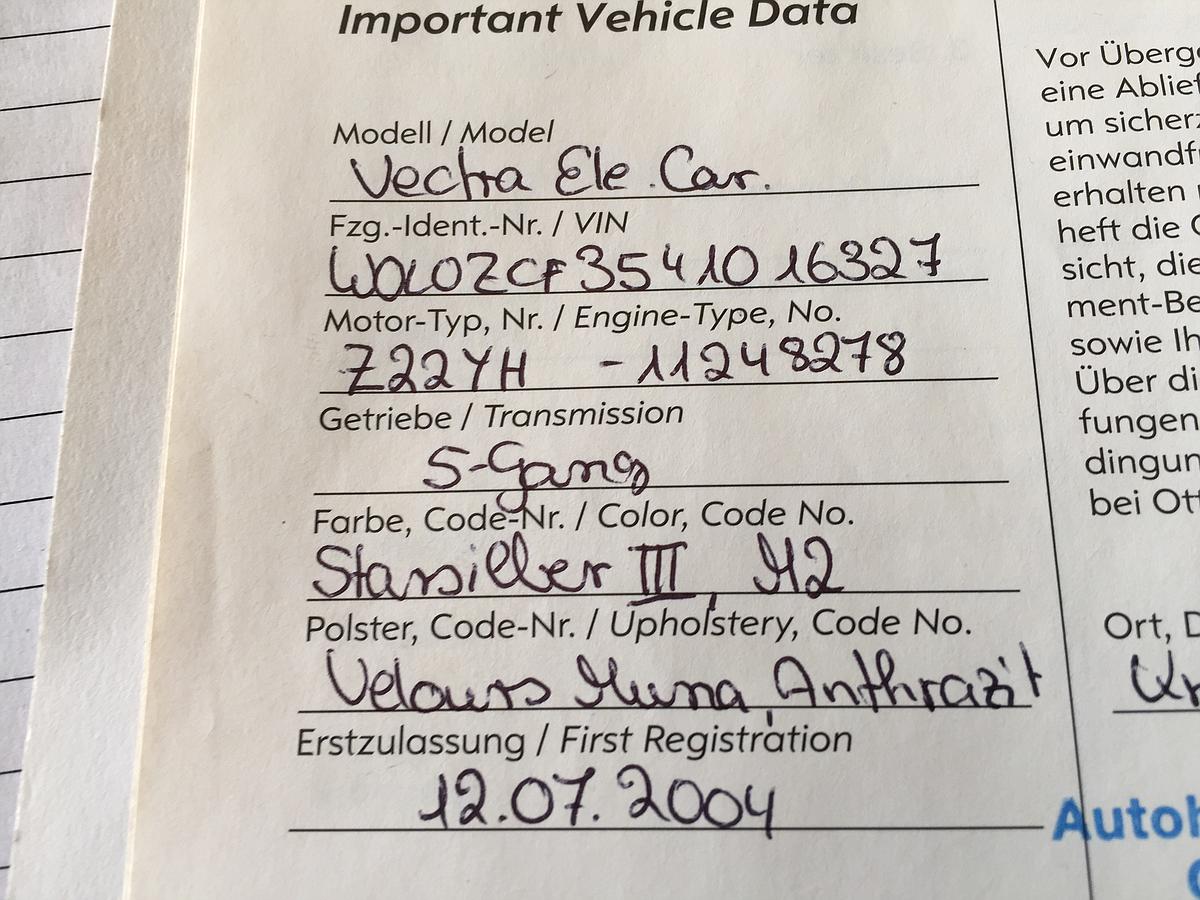 Important Vehicle Data
Modell / Model
Vectra Ele. Car.
Fzg.-Ident.-Nr. / VIN
W0L0ZCF3541016327
Motor-Typ, Nr. / Engine-Type, No.
Z22YH -11248278
Getriebe / Transmission
5-Gang
Farbe, Code-Nr. / Color, Code No.
Starsilber III, H2
Polster, Code-Nr. / Upholstery, Code No.
Velours Muna, Anthrazit
Erstzulassung / First Registration
12.07.2004
Vor Überg
eine Ablief
um sicherz
einwandf
erhalten
heft die
sicht, die
ment-Be
sowie Ih
Über di
fungen
dingun
bei Ott
Ort, D
Autoh